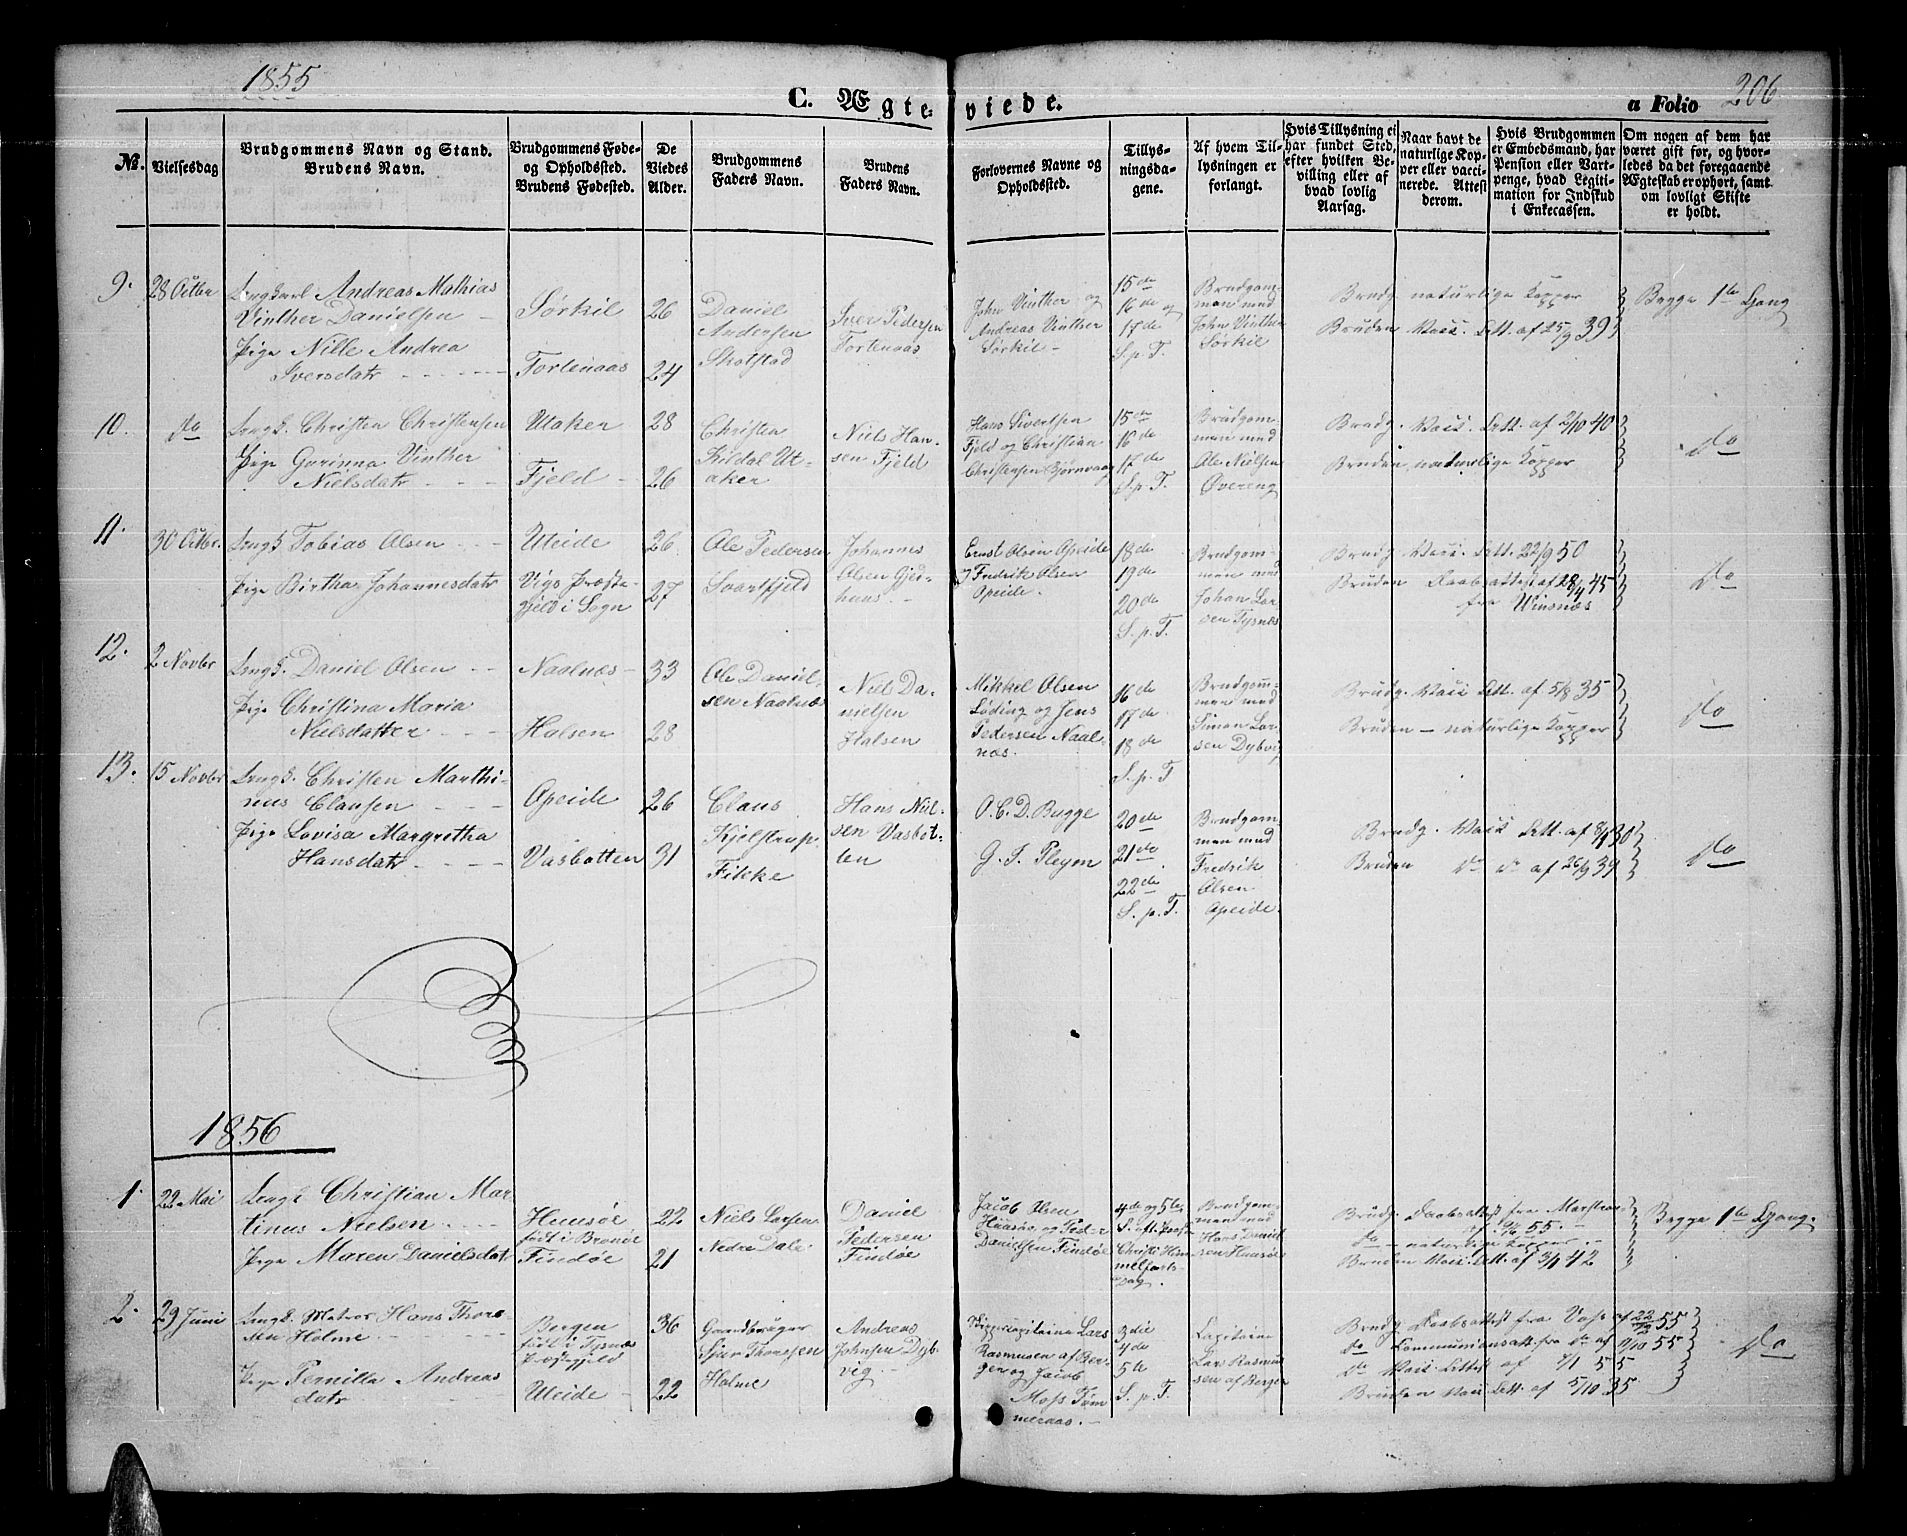 1855
C. Ægteviede.
a Folio 206
No.
Vielsesdag
Brudgommens Navn og Stand.
Brudens Navn.
Brudgommens Føde-
og Opholdssted.
Brudens Fødested.
De
Viedes
Alder.
Brudgommens
Faders Navn.
Brudens
Faders Navn.
Forlovernes Navne og
Opholdssted.
Tillys-
ningsda-
gene.
Af hvem Til-
lysningen er
forlangt.
Hvis Tillysning ei
har fundet Sted,
efter hvilken Be-
villing eller af
hvad lovlig
Aarsag.
Naar havt de
naturlige Kop-
per eller vacci-
nerede. Attest
derom.
Hvis Brudgommen
er Embedsmand, har
Pension eller Vart-
penge, hvad Legiti-
mation for Indskud
i Enkecassen.
Om nogen af dem har
været gift før, og hvor-
ledes da det foregaaende
Ægteskab er ophørt, samt
om lovligt Skifte
er holdt.
9.
28 Octbr
Ungkarl Andreas Mathias
Vinther Danielsen
Pige Nille Andrea
Iversdatr
Sørkil
Tortenaas
26
24
Daniel
Andersen
Skolstad
Iver Pedersen
Tortenaas
John Vinther og
Andreas Vinther
Sørkil
15de
16de og
17de
S. p. T.
Brudgom-
men med
John Vinther
Sørkil
Brudg naturlige Kopper
Bruden Vacc. Att. af 25/9 39
Begge 1te Gang
10.
do
Ungk. Christen Christensen
Pige Gurinna Vinther
Nielsdatr
Utaker
Fjeld
28
26
Christen
Kildal Ut-
aker
Niels Han-
sen Fjeld
Hans Sivertsen
Fjeld og Christian
Christensen Bjørnvaag
15de
16de
17de
S. p. T.
Brudgom-
men med
Ole Nielsen
Øvereng
Brudg. Vacc. Att. af 2/10 40
Bruden naturlige Kopper
do
11.
30 Octbr.
Ungk Tobias Olsen
Pige Birtha Johannesdatr
Uteide
Vigs Præste-
gjeld i Sogn
26
27
Ole Pedersen
Svartfjeld
Johannes
Olsen Gjer-
huus
Ernst Olsen Opeide
og Fredrik Olsen
Opeide.
18de
19de
20de
S. p. T.
Brudgom-
men med
Johan Lar-
sen Tysnæs
Brudg. Vacc. Att. 22/9 50
Bruden Daabsattest af 28/4 45
fra Winsnæs
do
12.
2 Novbr
Ungk. Daniel Olsen
Pige Christina Maria
Nielsdatter
Naalnæs
Halsen
33
28
Ole Daniel-
sen Naalnæs
Niels Da-
nielsen
Halsen
Mikkel Olsen
Løding og Jens
Pedersen Naal-
næs.
16de
17de
18de
S. p. T
Brudgom-
men med
Simon Lar-
sen Dybvig
Brudg. Vacc Att. af 5/8 35
Bruden naturlige Kopper
do
13.
15 Novbr
Ungk. Christen Marthi-
nus Clausen
Pige Lovisa Margretha
Hansdatr
Opeide
Vasbotten
26
31
Claus
Kjelstrup
Fikke
Hans Niel-
sen Vasbot-
ten
O. C. D. Bugge
G. F. Pleym
20de
21de
22de
S. p. T.
Brudgom-
men med
Fredrik
Olsen
Opeide.
Brudg. Vacc Att. af 8/9 30
Bruden do do af 26/9 39
do
1856
1.
22 Mai
Ungk Christian Mar-
tinus Nielsen
Pige Maren Danielsdatr
født i Brønø
Findøe
22
21
Niels Larsen
Nedre Dale
Daniel
Pedersen
Findøe
Jacob Olsen
og Peder
Danielsen Findøe
4de og 5te
Christi Him-
melfarts-
dag.
Brudgom-
men med
Hans Daniel-
sen
Brudg. Daabsattest fra
do naturlige Kopper
Bruden Vacc. Att. af 3/9 42
Begge 1te Gang.
2.
29 Juni
Ungk. Matros Hans Thore-
sen Holme
Pige Pernilla Andreas
datr
Bergen
født i Tysnæs
Præstegjeld
Uteide
36
22
Gaardbruger
Sjur Thoresen
Holme
Andreas
Johnsen Dyb-
vig
Lars
Rasmusen af Ber-
gen og Jacob
Moss Tøm-
meraas.
3die
4de
5te
S. p. T.
Capitaine
Lars Rasmu-
sen af Bergen
Brudg Daabsattest fra Voss af 22/12 55
do Communionsatt. fra do af 9/10 55
do Vacc. Attest af 7/1 55
Bruden Vacc. Att. af 5/10 35
do